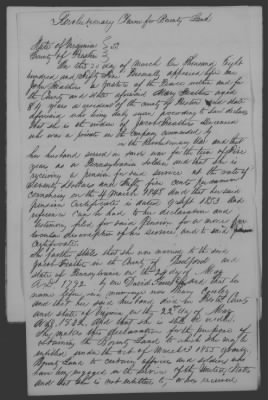 Revolutionary Claim for Bounty Land
State of Virginia
County of Preston
On this day of March One Thousand Eight
hundred and fifty five Personally appeared before me
John a Justice of the Peace within and for
the County and state aforesaid Mary aged
84 years a resident of the county of Preston and state
aforesaid who being duly sworn according to law declares
that she is the widow of Jacob deceased
who was a private in the Company commanded by
in the Revolutionary War and that
her husband served in said war for the term of
years as a Pennsylvania soldier and that she is
receiving a pension for said service at the rate of
Seventy Dollars and fifty five cents per annum
commencing on the 4 March 1848 and that her said
pension Certificate is dated 9 Sept 1853 and
reference can be had to her declaration and
testimony filed for said Pension for a more
description of his service and to said
Certificate
She further states that she was married to the said
Jacob in the County of Bedford and
state of Pennsylvania on the 29 day of May
AD 1792 by one and that her
name before marriage was Mary
and that her said husband died in Preston County
and state of Virginia on the 22 day of May
AD 1832 and that she is still a widow
She makes this declaration for the purpose of
obtaining the Bounty Land to which she may be
entitled under the act of March 3 1855 granting
Bounty Land to certain officers and soldiers who
have been engaged in the service of the United States
and that she is not entitled to, or has received